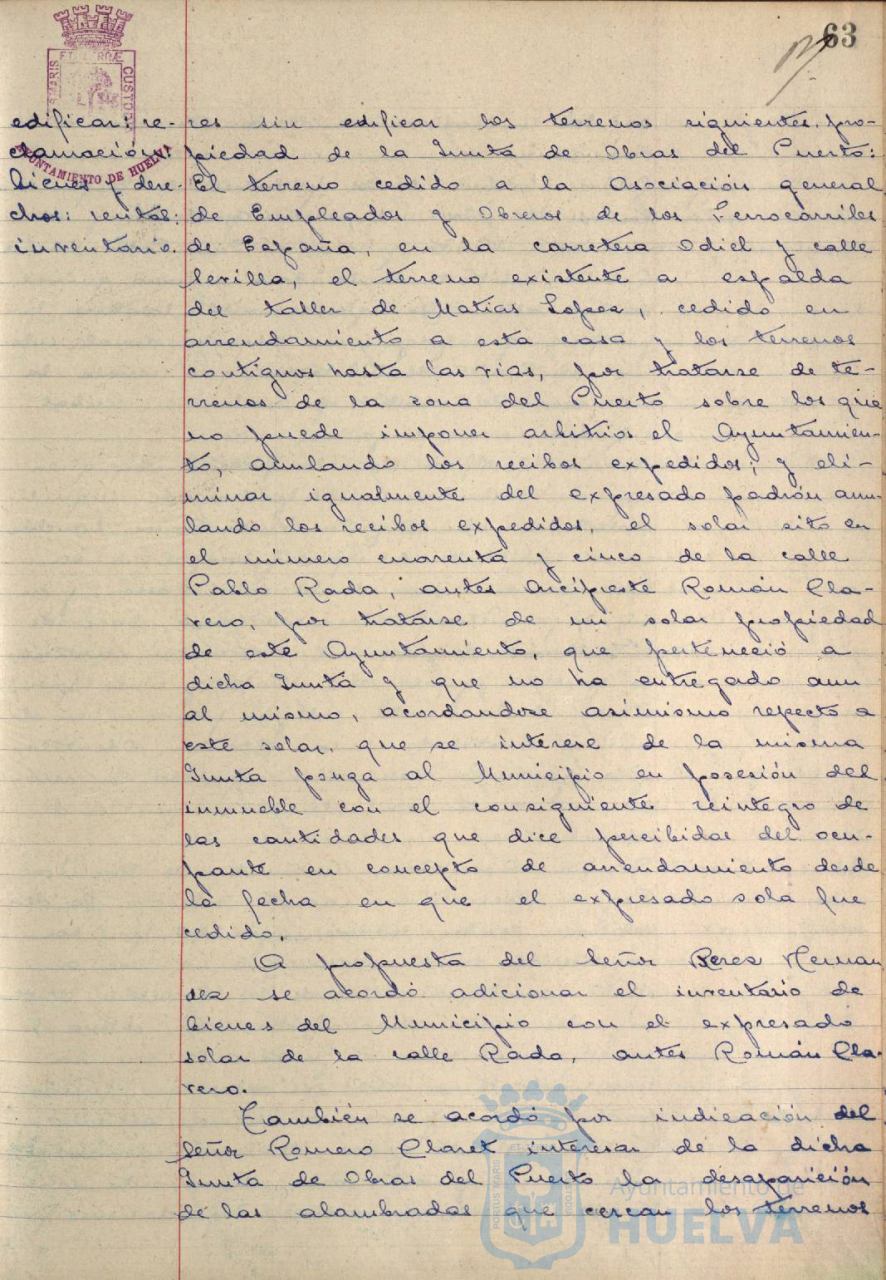 63
edificar: re-
clamación:
bienes y dere-
chos: rentas:
inventario.
PORTUS MARIS ET TERRAE CUSTODIA
AYUNTAMIENTO DE HUELVA
res sin edificar los terrenos siguientes, pro-
piedad de la Junta de Obras del Puerto:
El terreno cedido a la Asociación general
de Empleados y Obreros de los Ferrocarriles
de España, en la carretera Odiel y calle
Sevilla, el terreno existente a espalda
del taller de Matías Lopez, cedido en
arrendamiento a esta casa y los terrenos
contiguos hasta las vías, por tratarse de te-
rrenos de la zona del Puerto sobre los que
no puede imponer arbitrios el Ayuntamien-
to, anulando los recibos expedidos; y eli-
minar igualmente del expresado padrón anu-
lando los recibos expedidos, el solar sito en
el número cuarenta y cinco de la calle
Pablo Rada, antes Arcipreste Román Cla-
vero, por tratarse de un solar propiedad
de este Ayuntamiento, que perteneció a
dicha Junta y que no ha entregado aun
al mismo, acordandose asimismo repecto a
este solar, que se interese de la misma
Junta ponga al Municipio en posesión del
inmueble con el consiguiente reintegro de
las cantidades que dice percibidas del ocu-
pante en concepto de arrendamiento desde
la fecha en que el expresado sola fue
cedido.
A propuesta del Señor Perez Hernan
dez se acordó adicionar el inventario de
bienes del Municipio con el expresado
solar de la calle Rada, antes Román Cla-
vero.
También se acordó por indicación del
Señor Romero Claret interesar de la dicha
Junta de Obras del Puerto la desaparición
de las alambradas que cercan los terrenos
Ayuntamiento de
HUELVA